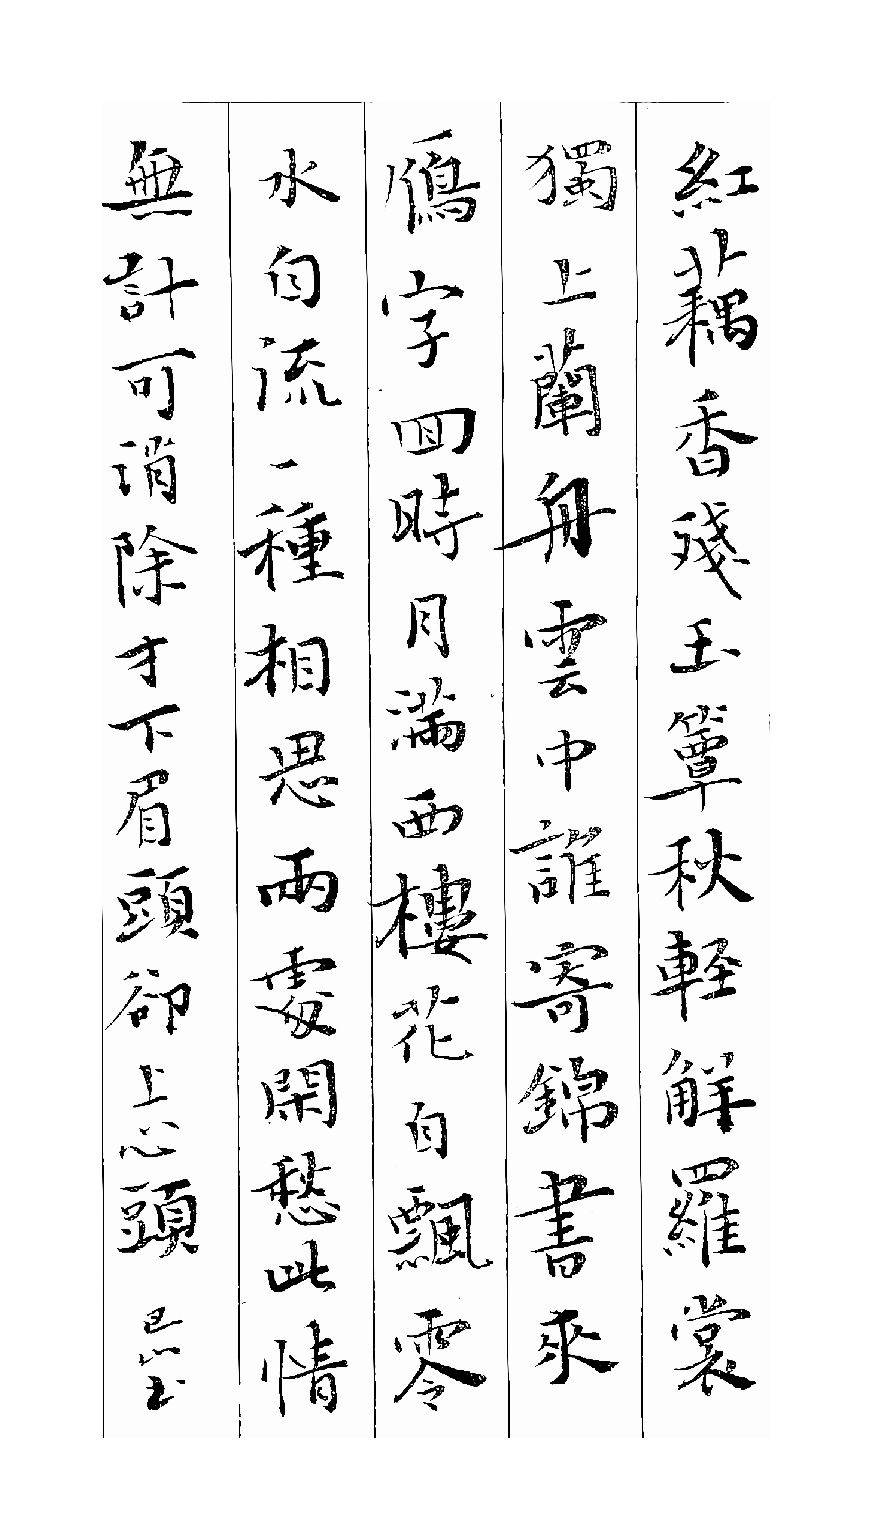 紅藕香殘玉簟秋輕解羅裳
獨上蘭舟雲中誰寄錦書來
鴈字回時月滿西樓花自飄零
水自流一種相思兩處閑愁此情
無計可消除才下眉頭卻上心頭